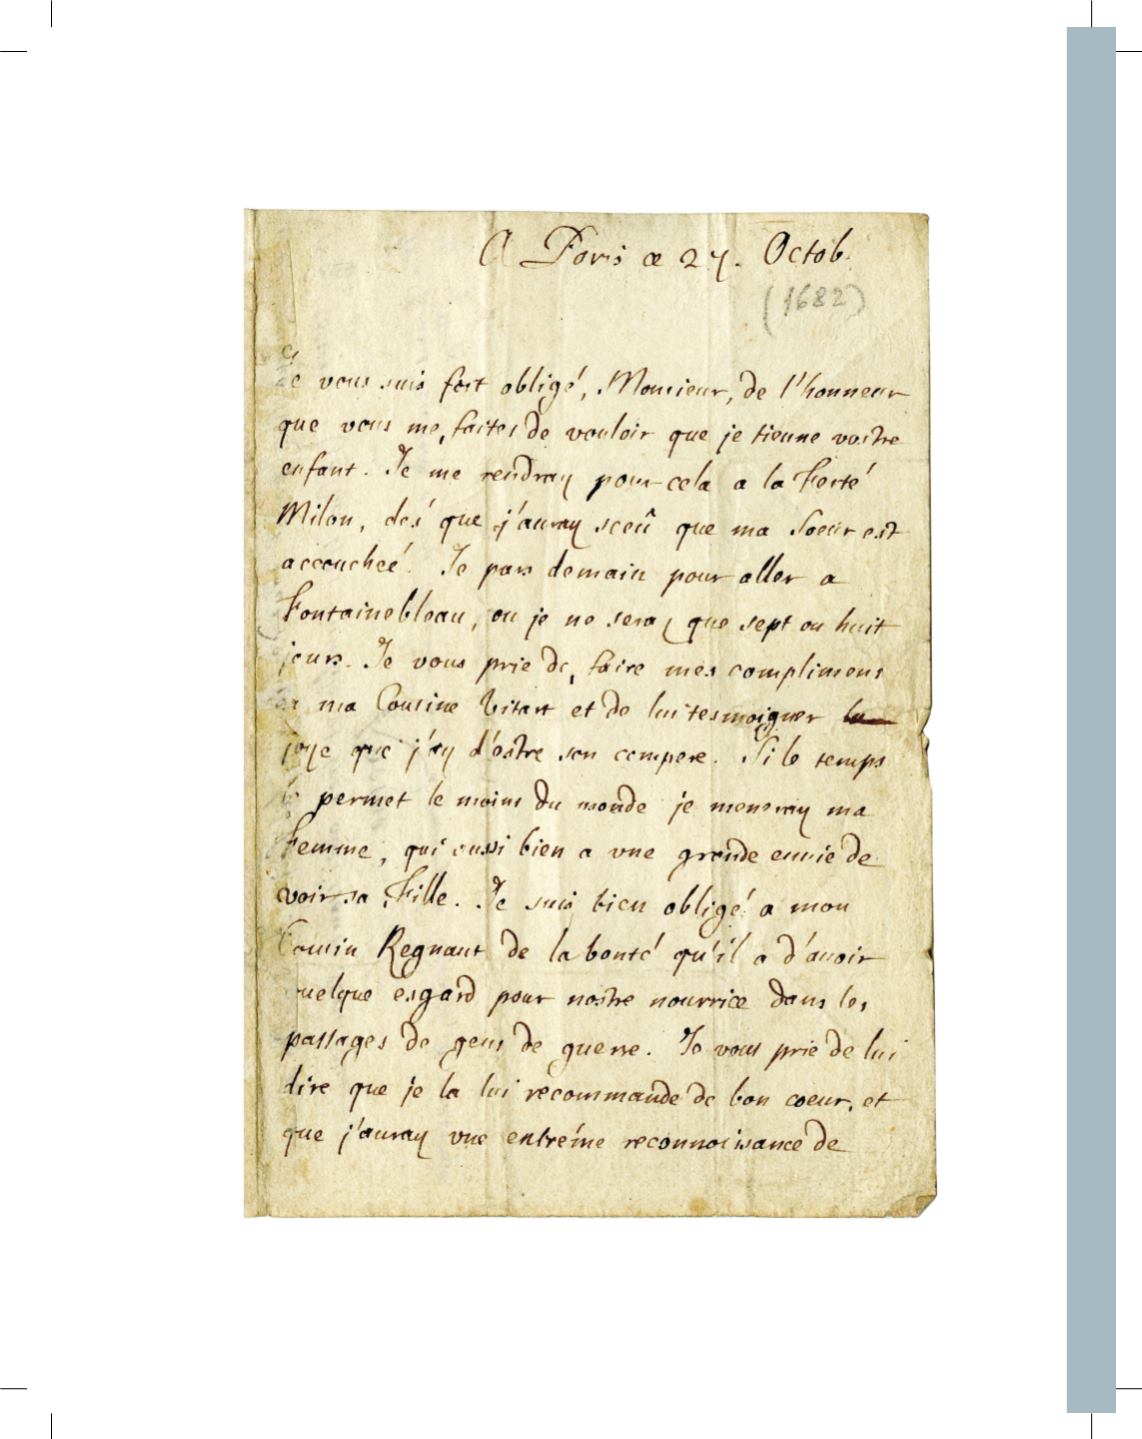 A Paris ce 27. Octob.
(1682)
Je vous suis fort obligé, Monsieur, de l'honneur
que vous me faites de vouloir que je tienne vostre
enfant. Je me rendray pour cela a la Ferté
Milon, des que j'auray sceû que ma Soeur est
accouchée. Je pars demain pour aller a
Fontainebleau, ou je ne seray que sept ou huit
jours. Je vous prie de faire mes complimens
a ma Cousine Vitart et de lui tesmoigner la
joye que j'ay d'estre son compere. Si le temps
le permet le moins du monde je meneray ma
Femme, qui aussi bien a vne grande enuie de
voir sa Fille. Je suis bien obligé a mon
Cousin Regnaut de la bonté qu'il a d'auoir
quelque esgard pour nostre nourrice dans les
passages de gens de guerre. Je vous prie de lui
dire que je la lui recommande de bon coeur, et
que j'auray vne extréme reconnoissance de